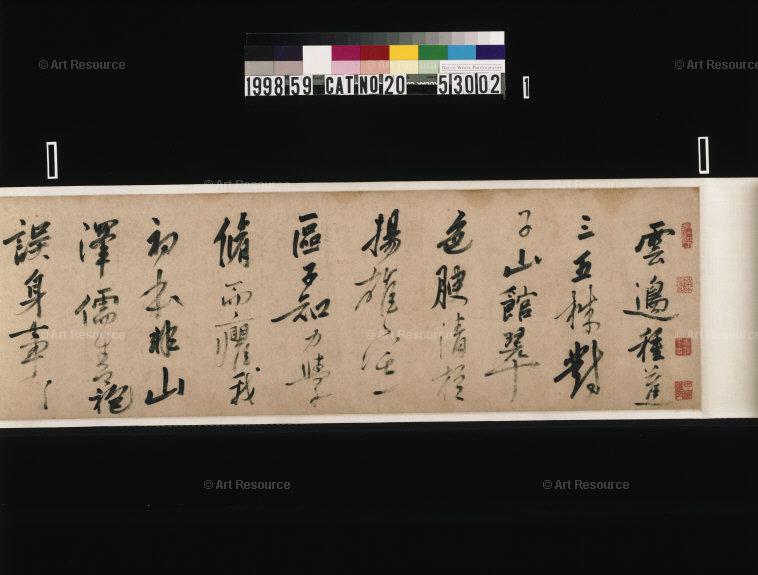 © Art Resource
© Art Resource
BRUCE WHITE PHOTOGRAPHY
1998 59 CAT NO 20 5 30 02 1
© Art Resource
© Art Resource
雲邊種
三五株對
子山館翠
色腴清於
揚雄一
區子知力學
脩而癯我
初本非山
澤儒袍
誤身事
© Art Resource
© Art Resource
© Art Resource
© Art Resource
© Art Resource
© Art Resource